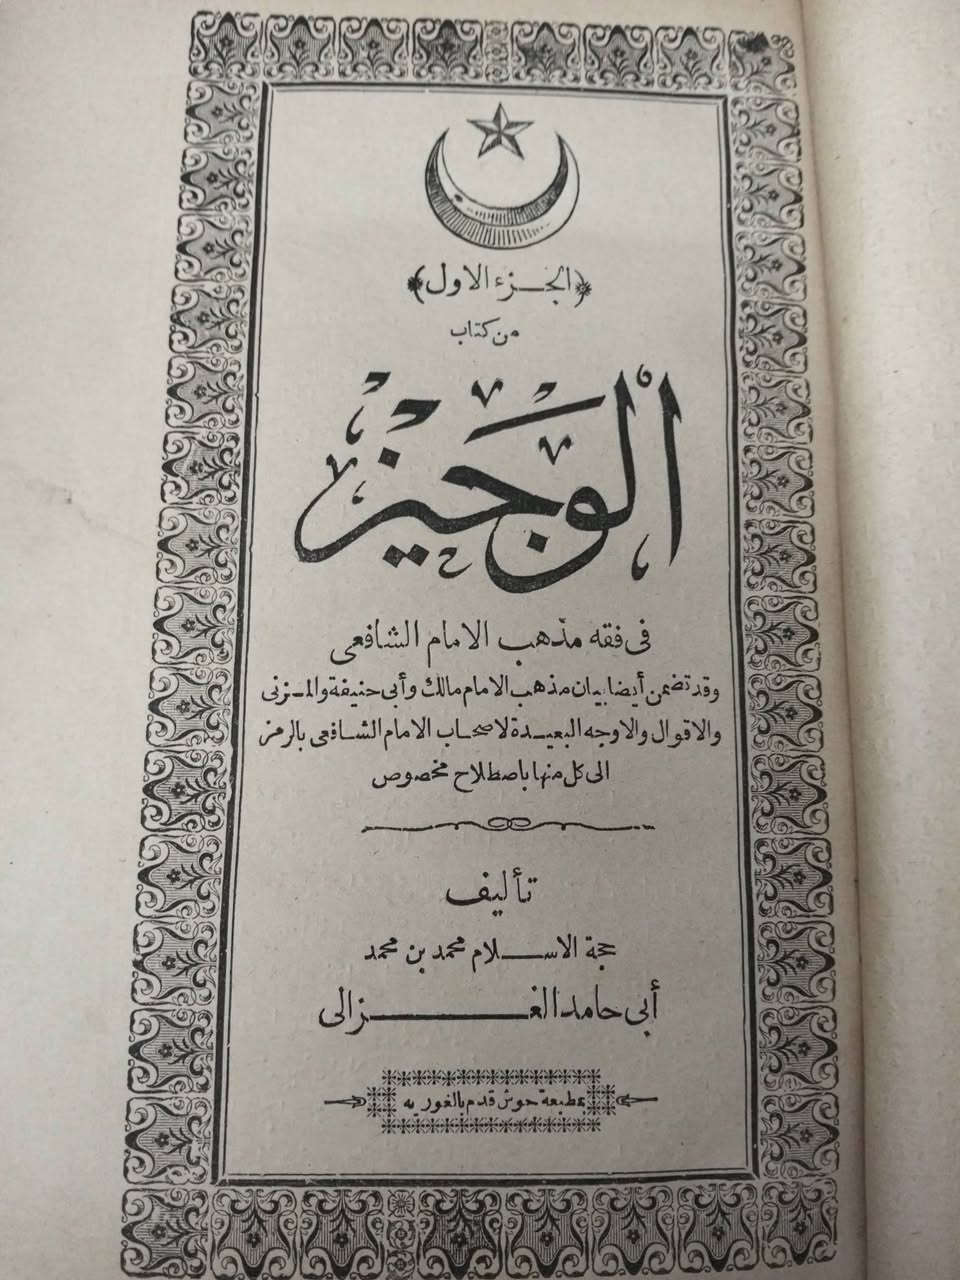 ﴿الجزء الاول﴾
من كتاب
الوجيز
فى فقه مذهب الامام الشافعى
وقد تضمن أيضا بيان مذهب الامام مالك وأبى حنيفة والمزنى
والاقوال والاوجه البعيدة لاصحاب الامام الشافعى بالرمز
الى كل منها باصطلاح مخصوص
تأليف
حجة الاسلام محمد بن محمد
أبى حامد الغزالى
بمطبعة حوش قدم بالغوريه